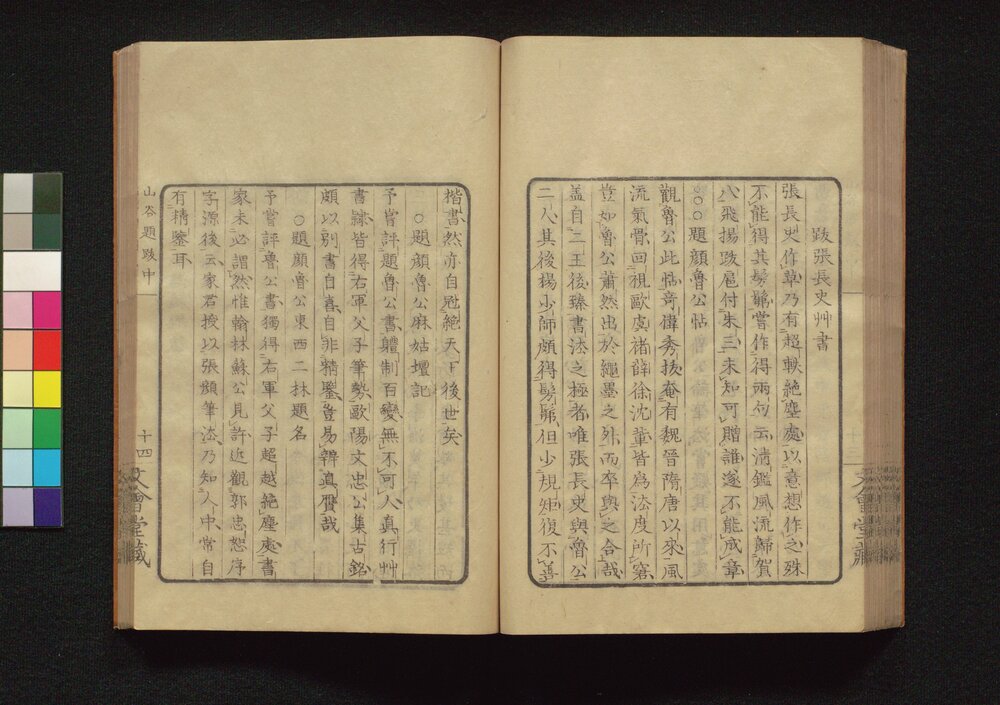 跋張長史艸書
張長史作草乃有超軼絶塵處以意想作之殊
不能得其髣髴嘗作得兩句云清鑑風流歸賀
八飛揚跋扈付朱三未知可贈誰遂不能成章
○○題顔魯公帖
觀魯公此帖竒偉秀拔奄有魏晉隋唐以來風
流氣骨回視歐虞褚薛徐沈輩皆爲法度所窘
豈如魯公蕭然出於繩墨之外而卒與之合哉
盖自二王後臻書法之極者唯張長史與魯公
二人其後揚少師頗得髣髴但少規矩復不善
楷書然亦自冠絶天下後世矣
○題顔魯公麻姑壇記
予嘗評題魯公書軆制百變無不可人真行艸
書隸皆得右軍父子筆勢歐陽文忠公集古銘
頗以別書自喜自非精鑒豈易辨真贋哉
○題顔魯公東西二林題名
予嘗評魯公書獨得右軍父子超越絶塵處書
家未必謂然惟翰林蘇公見許近觀郭忠恕序
字源後云家君授以張顔筆法乃知人中常自
有精鑒耳
山谷題跋中
十四
文會堂藏
文會堂藏